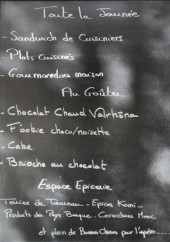 Toute la Journée
- Sandwich de Cuisiniers
- Plats Cuisinés
- Gourmandises maison
Au Goûter
- Chocolat Chaud Valrhôna
- Fookie choco/noisette
- Cake
- Brioche au chocolat
Espace Epicerie
de Taureau - Epices
Produits du Pays Basque - Cornichons
et plein de Bonnes Choses pour l'apéro.....